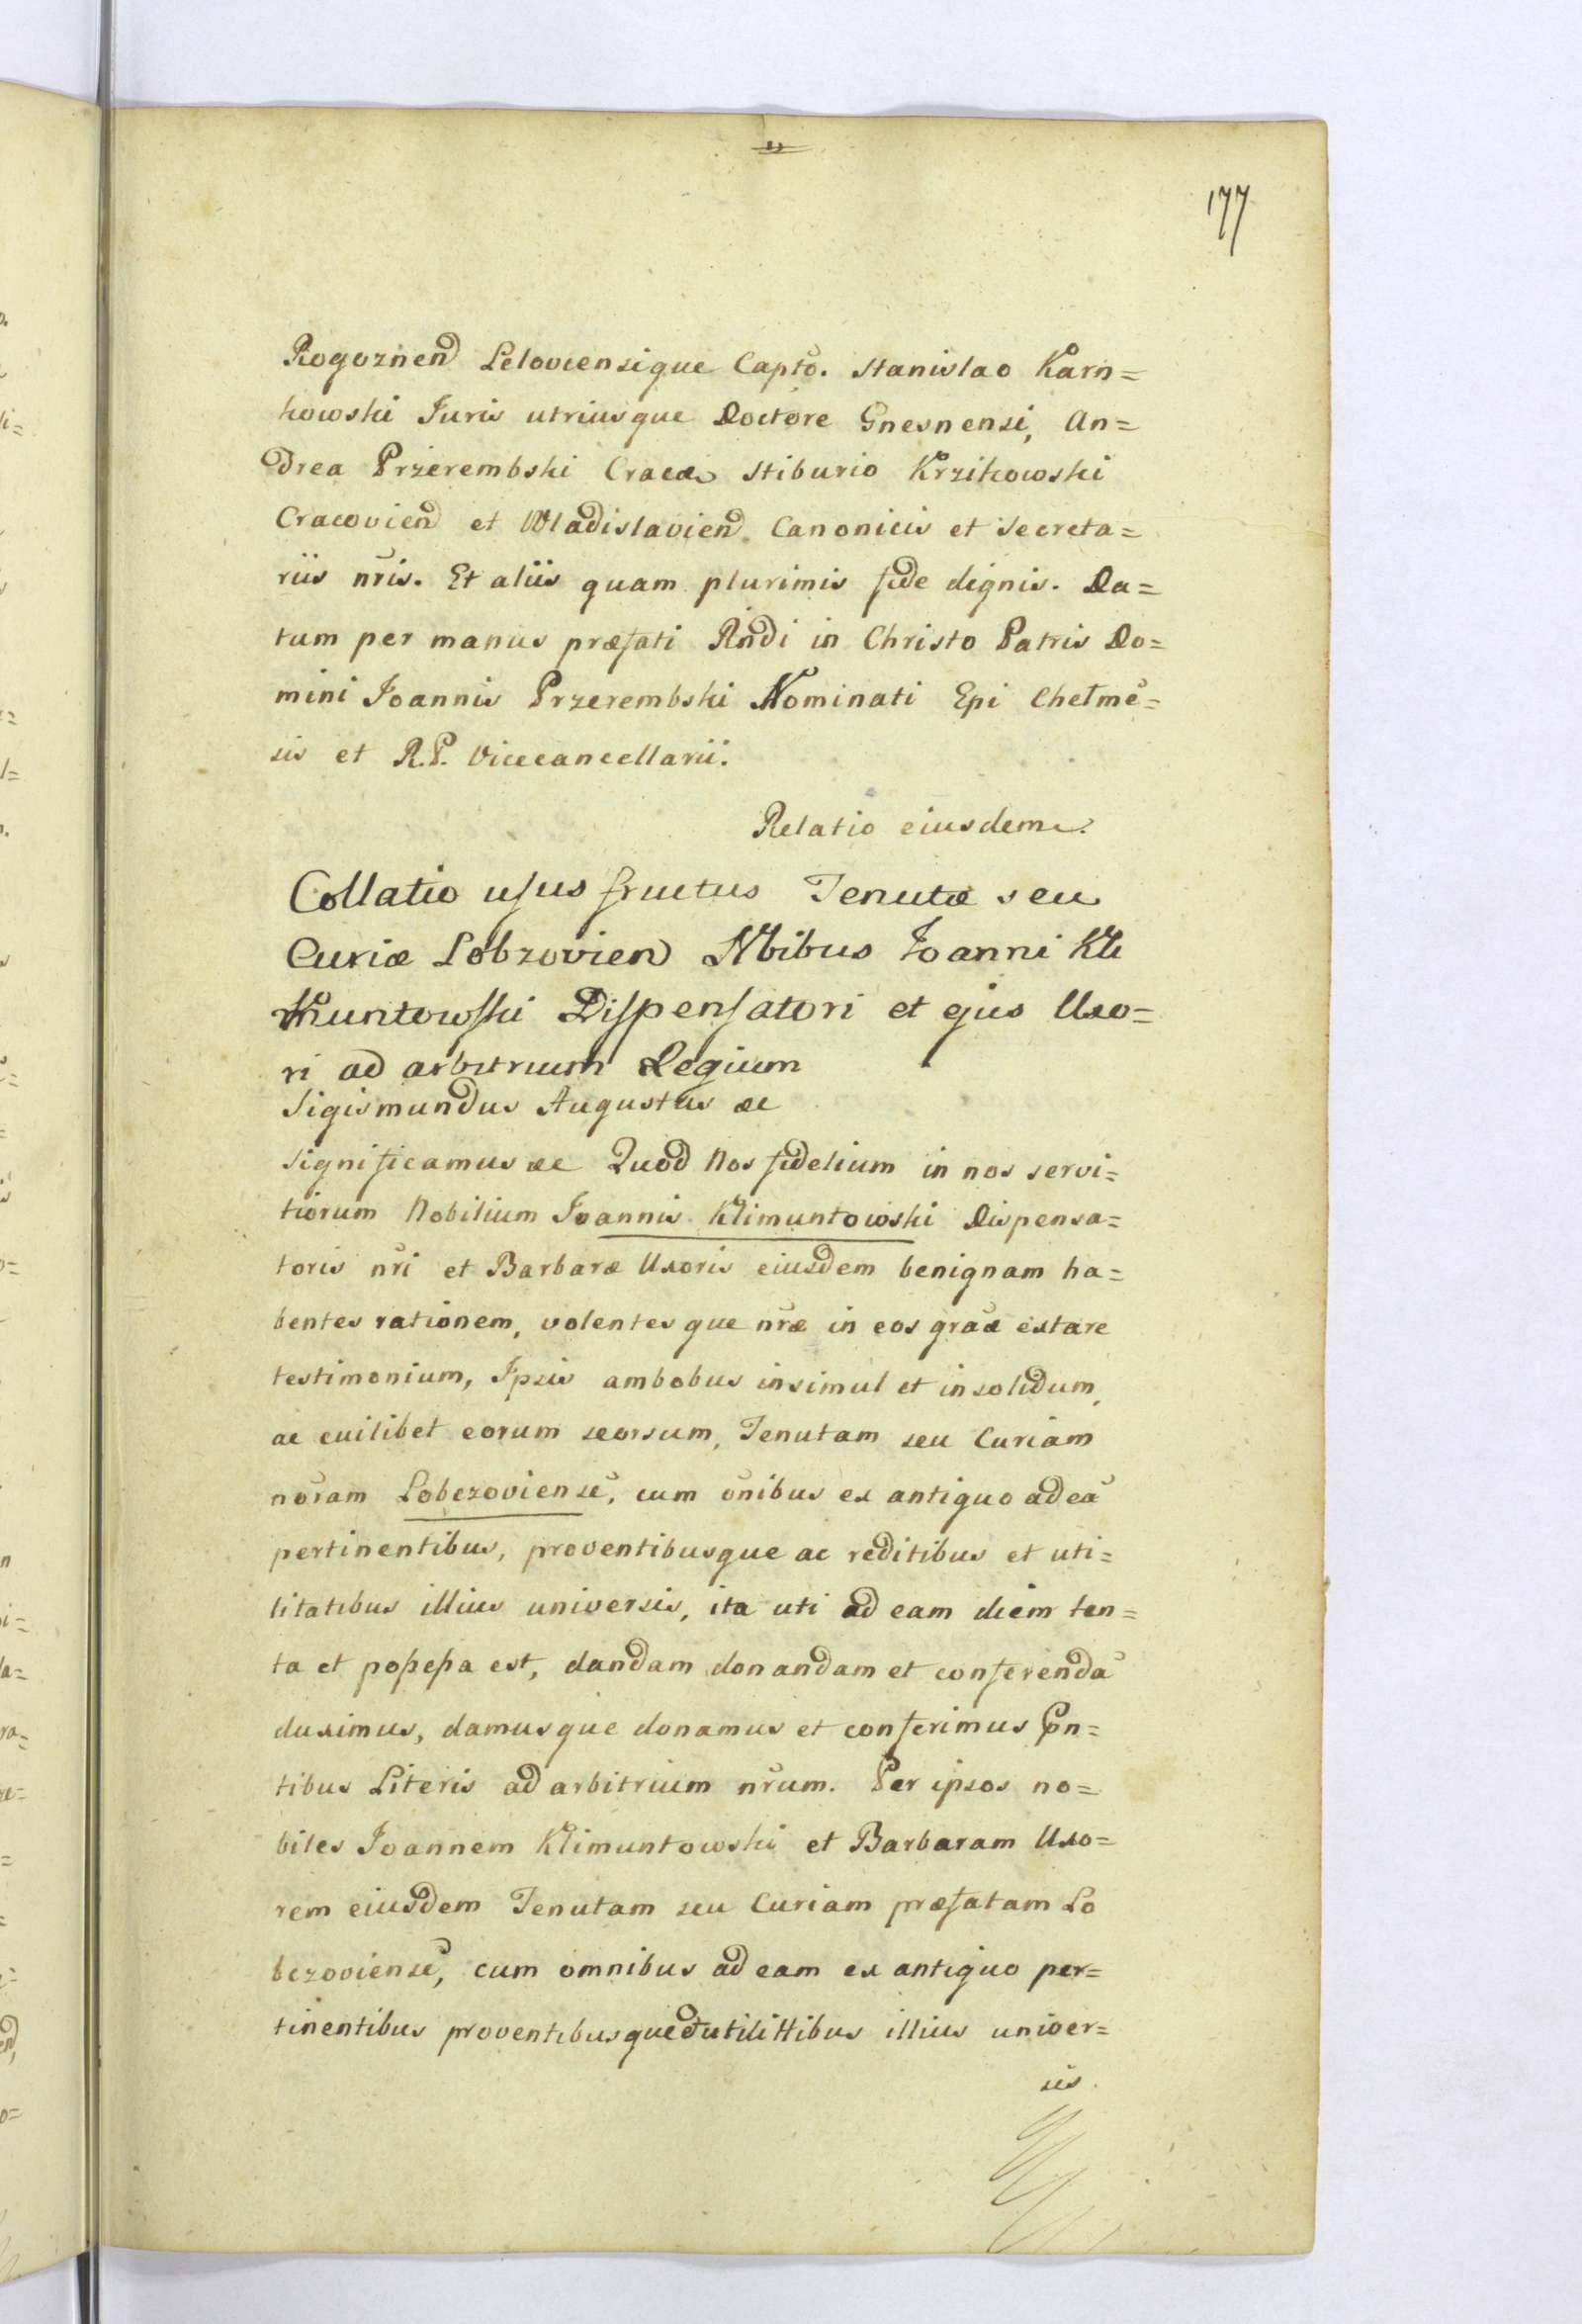 177
Rogoznen Leloviensique Capto. Stanislao Karn=
kowski Juris utriusque Doctore Gnesnensi, An=
drea Przerembski Cracov Stiburio Krzikowski
Cracovien et Wladislavien. Canonicis et Secreta=
riis nris. Et aliis quam plurimis fide dignis. Da=
tum per manus præfati Rndi in Christo Patris Do=
mini Joannis Przerembski Nominati Epi Chełmẽ=
sis et R.P. Vicecancellarii.
Relatio eiusdem.
Collatio usus fructus Tenutæ seu
Curiæ Lobzovien Nbibus Joanni Kli
muntowski Dispensatori et ejus Uxo=
ri ad arbitrium Regium
Sigismundus Augustus &c
Significamus &c Quod Nos fidelium in nos servi=
tiorum Nobilium Joannis Klimuntowski Dispensa=
toris nri et Barbaræ Uxoris eiusdem benignam ha=
bentes rationem, volentesque nræ in eos graæ extare
testimonium, Ipsis ambobus insimul et insolidum,
ac cuilibet eorum seorsum, Tenutam seu Curiam
noram Lobezoviensẽ, cum õnibus ex antiquo ad eã
pertinentibus, proventibusque ac reditibus et uti=
litatibus illius universis, ita uti ad eam diem ten=
ta et possessa est, dandam donandam et conferendã
duximus, damusque donamus et conferimus Pñ=
tibus Literis ad arbitrium nrum. Per ipsos no=
biles Joannem Klimuntowski et Barbaram Uxo=
rem eiusdem Tenutam seu Curiam præfatam Lo
bezoviensẽ, cum omnibus ad eam ex antiquo per=
tinentibus proventibusque et utilittibus illius univer=
sis.